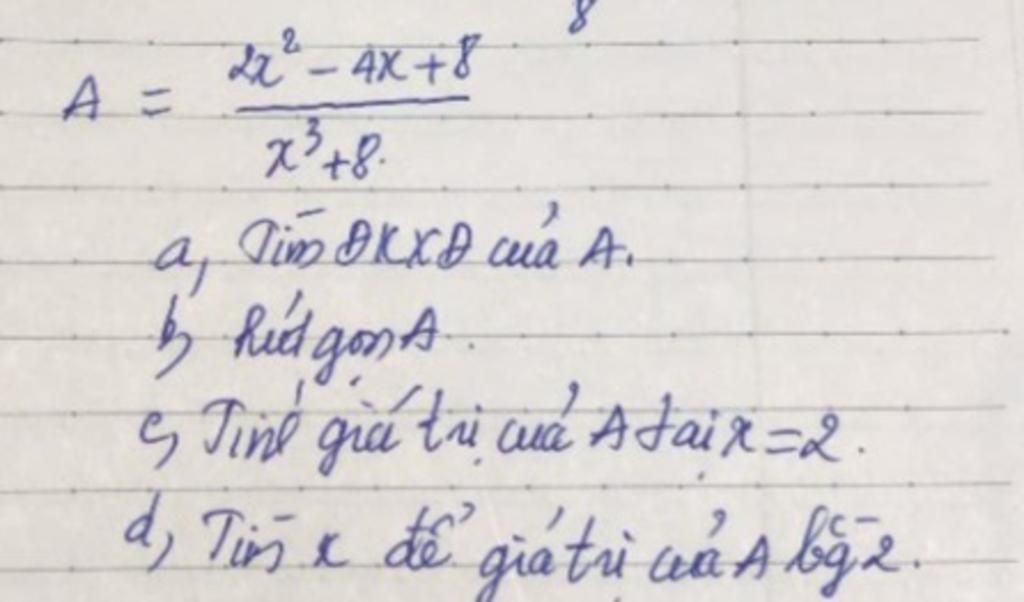 8
A = \frac{2x^2 - 4x + 8}{x^3 + 8}.
a, Tìm ĐKXĐ của A.
b, Rút gọn A.
c, Tính giá trị của A tại x = 2.
d, Tìm x để giá trị của A bg̀ 2.